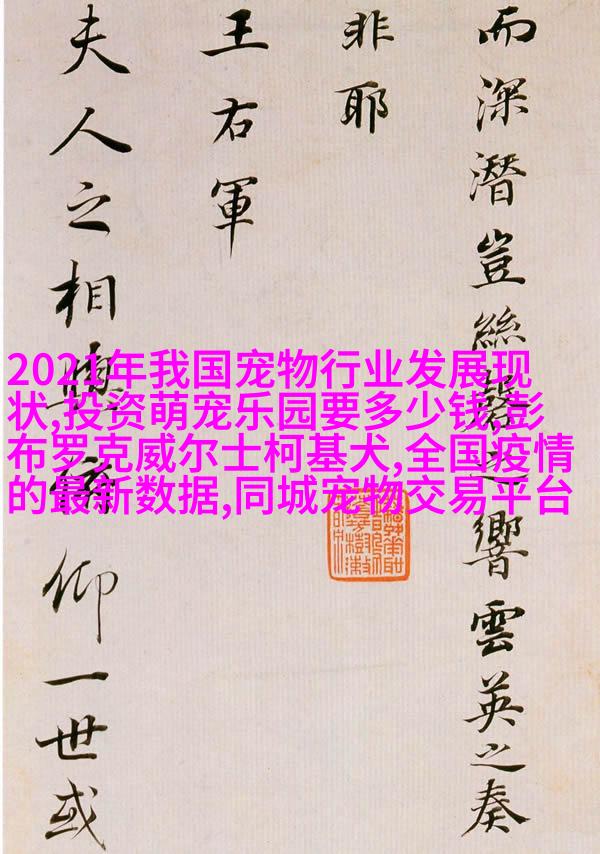 而深潛豈絲器之響雲英之奏
非耶
王右軍
夫人之相與俯仰一世或
2021年我国宠物行业发展现
状,投资萌宠乐园要多少钱,彭
布罗克威尔士柯基犬,全国疫情
的最新数据,同城宠物交易平台